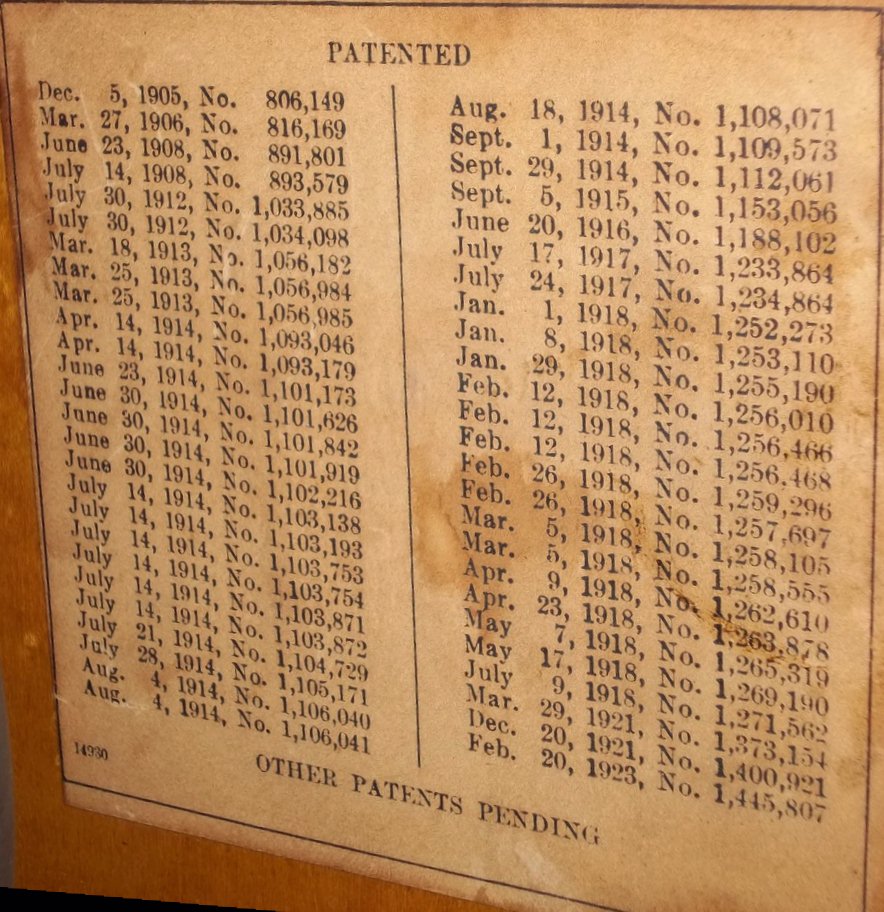 PATENTED
Dec. 5, 1905, No. 806,149
Mar. 27, 1906, No. 816,169
June 23, 1908, No. 891,801
July 14, 1908, No. 893,579
July 30, 1912, No. 1,033,885
July 30, 1912, No. 1,034,098
Mar. 18, 1913, No. 1,056,182
Mar. 25, 1913, No. 1,056,984
Mar. 25, 1913, No. 1,056,985
Apr. 14, 1914, No. 1,093,046
Apr. 14, 1914, No. 1,093,179
June 23, 1914, No. 1,101,173
June 30, 1914, No. 1,101,626
June 30, 1914, No. 1,101,842
June 30, 1914, No. 1,101,919
June 30, 1914, No. 1,102,216
July 14, 1914, No. 1,103,138
July 14, 1914, No. 1,103,193
July 14, 1914, No. 1,103,753
July 14, 1914, No. 1,103,754
July 14, 1914, No. 1,103,871
July 14, 1914, No. 1,103,872
July 21, 1914, No. 1,104,729
July 28, 1914, No. 1,105,171
Aug. 4, 1914, No. 1,106,040
Aug. 4, 1914, No. 1,106,041
Aug. 18, 1914, No. 1,108,071
Sept. 1, 1914, No. 1,109,573
Sept. 29, 1914, No. 1,112,061
Sept. 5, 1915, No. 1,153,056
June 20, 1916, No. 1,188,102
July 17, 1917, No. 1,233,864
July 24, 1917, No. 1,234,864
Jan. 1, 1918, No. 1,252,273
Jan. 8, 1918, No. 1,253,110
Jan. 29, 1918, No. 1,255,190
Feb. 12, 1918, No. 1,256,010
Feb. 12, 1918, No. 1,256,466
Feb. 12, 1918, No. 1,256,468
Feb. 26, 1918, No. 1,259,296
Feb. 26, 1918, No. 1,257,697
Mar. 5, 1918, No. 1,258,105
Mar. 5, 1918, No. 1,258,555
Apr. 9, 1918, No. 1,262,610
Apr. 23, 1918, No. 1,263,878
May 7, 1918, No. 1,265,319
May 17, 1918, No. 1,269,190
July 9, 1918, No. 1,271,562
Mar. 29, 1921, No. 1,373,154
Dec. 20, 1921, No. 1,400,921
Feb. 20, 1923, No. 1,445,807
14930
OTHER PATENTS PENDING